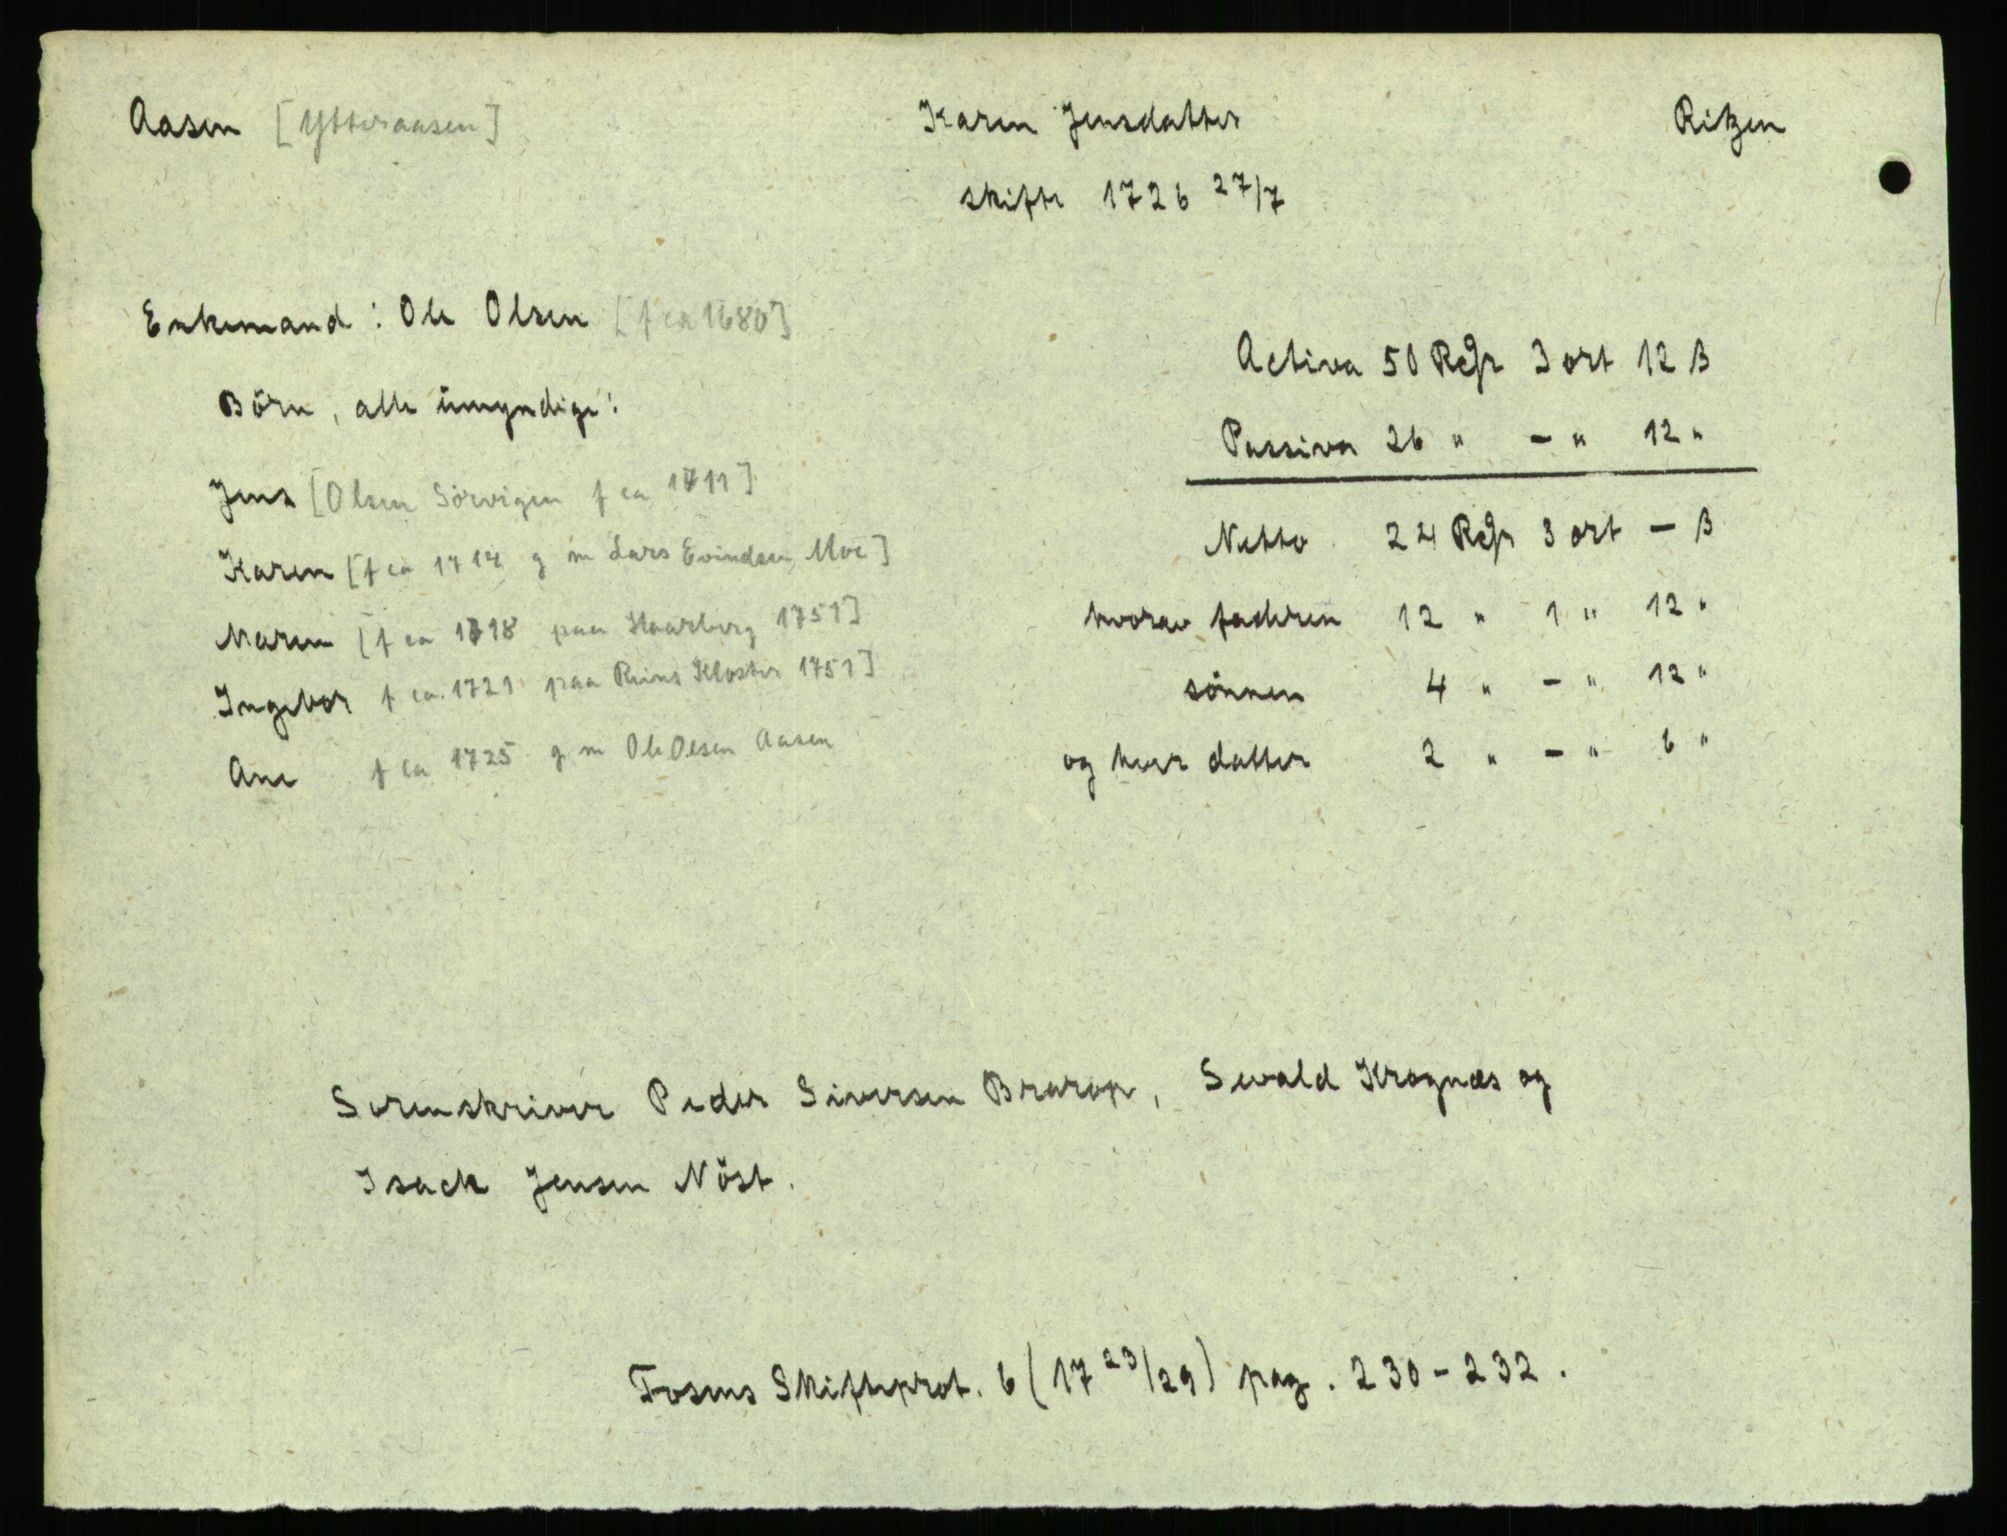 Aasen [Ytteraasen] Karen Jensdatter Ritzen
skifte 1726 27/7
Enkemand : Ole Olsen [f ca 1680]
Börn, alle ümyndige:
Jens [Olsen Sörvigen f ca 1711]
Karen [f ca 1714 g m Lars Evindsen Moe]
Maren [f ca 1718 paa Haarberg 1751]
Ingebor f ca. 1721 paa Reins Kloster 1751]
Ane f ca 1725 g m Ole Olsen Aasen
Activa 50 Rdr 3 ort 12 ß
Passiva 26 " - " 12 "
Netto 24 Rdr 3 ort - ß
hvorav faderen 12 " 1 " 12 "
sönnen 4 " - " 12 "
og hver datter 2 " - " 6 "
Sorenskriver Peder Siversen Brarop, Sevald Krognæs og
Isack Jensen Nöst.
Fosens Skifteprot. 6 (17 23/29) pag. 230-232.